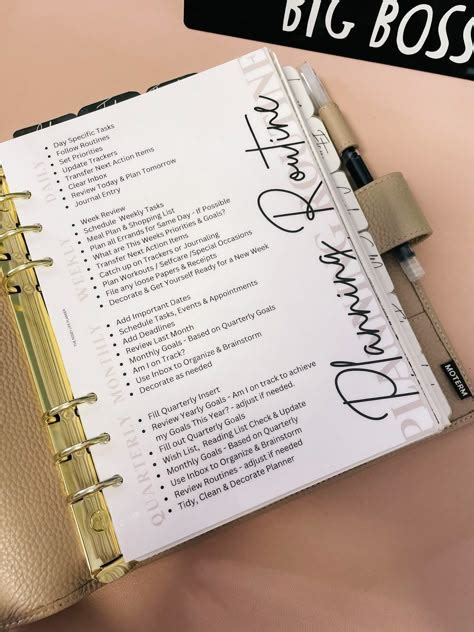 BIG BOSS
Planning Routine
DAILY
Day Specific Tasks
Follow Routines
Set Priorities
Update Trackers
Transfer Next Action Items
Clear Inbox
Review Today & Plan Tomorrow
Journal Entry
WEEKLY
Week Review
Schedule Weekly Tasks
Meal Plan & Shopping List
Plan all Errands for Same Day - If Possible
What are This Weeks Priorities & Goals?
Transfer Next Action Items
Catch up on Trackers or Journaling
Plan Workouts / Selfcare /Special Occasions
File any loose Papers & Receipts
Decorate & Get Yourself Ready for a New Week
MONTHLY
Add Important Dates
Schedule Tasks, Events & Appointments
Add Deadlines
Review Last Month
Monthly Goals - Based on Quarterly Goals
Am I on Track?
Use Inbox to Organize & Brainstorm
Decorate as needed
QUARTERLY
Fill Quarterly Insert
Review Yearly Goals - Am I on track to achieve
my Goals This Year? - adjust if needed.
Fill out Quarterly Goals
Wish List, Reading List Check & Update
Monthly Goals - Based on Quarterly
Use Inbox to Organize & Brainstorm
Review Routines - adjust if needed
Tidy, Clean & Decorate Planner
MOTERM